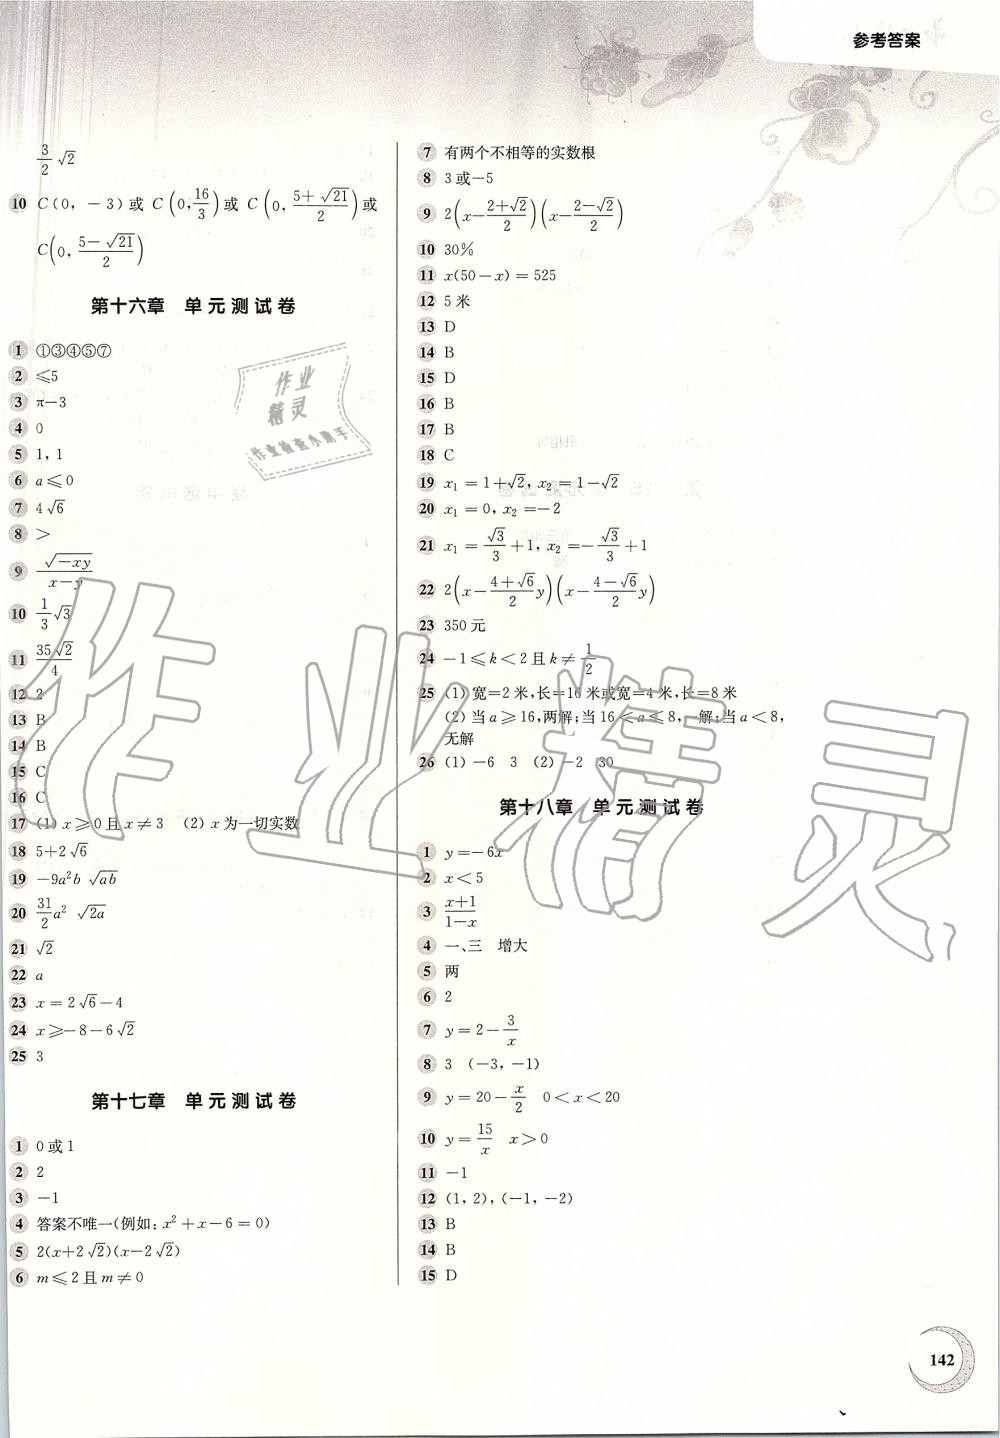 参考答案
3/2 √2
10 C(0, -3)或 C(0, 16/3)或 C(0, (5+√21)/2)或
C(0, (5-√21)/2)
第十六章 单元测试卷
1 ①③④⑤⑦
2 ≤5
3 π-3
4 0
5 1, 1
6 a≤0
7 4√6
8 >
9 √(-xy)/(x-y)
10 1/3 √3
11 35√2/4
12 2
13 B
14 B
15 C
16 C
17 (1) x≥0且x≠3 (2) x为一切实数
18 5+2√6
19 -9a²b √(ab)
20 31/2 a² √(2a)
21 √2
22 a
23 x=2√6-4
24 x≥-8-6√2
25 3
第十七章 单元测试卷
1 0或1
2 2
3 -1
4 答案不唯一(例如: x²+x-6=0)
5 2(x+2√2)(x-2√2)
6 m≤2且m≠0
7 有两个不相等的实数根
8 3或-5
9 2(x-(2+√2)/2)(x-(2-√2)/2)
10 30%
11 x(50-x)=525
12 5米
13 D
14 B
15 D
16 B
17 B
18 C
19 x₁=1+√2, x₂=1-√2
20 x₁=0, x₂=-2
21 x₁=√3/3+1, x₂=-√3/3+1
22 2(x-(4+√6)/2 y)(x-(4-√6)/2 y)
23 350元
24 -1≤k<2且k≠1/2
25 (1) 宽=2米,长=16米或宽=4米,长=8米
(2) 当a≥16,两解;当16<a≤8,一解;当a<8,
无解
26 (1) -6 3 (2) -2 30
第十八章 单元测试卷
1 y=-6x
2 x<5
3 (x+1)/(1-x)
4 一、三 增大
5 两
6 2
7 y=2-3/x
8 3 (-3, -1)
9 y=20-x/2 0<x<20
10 y=15/x x>0
11 -1
12 (1, 2), (-1, -2)
13 B
14 B
15 D
142
作业
精灵
作业检查小助手
作业精灵